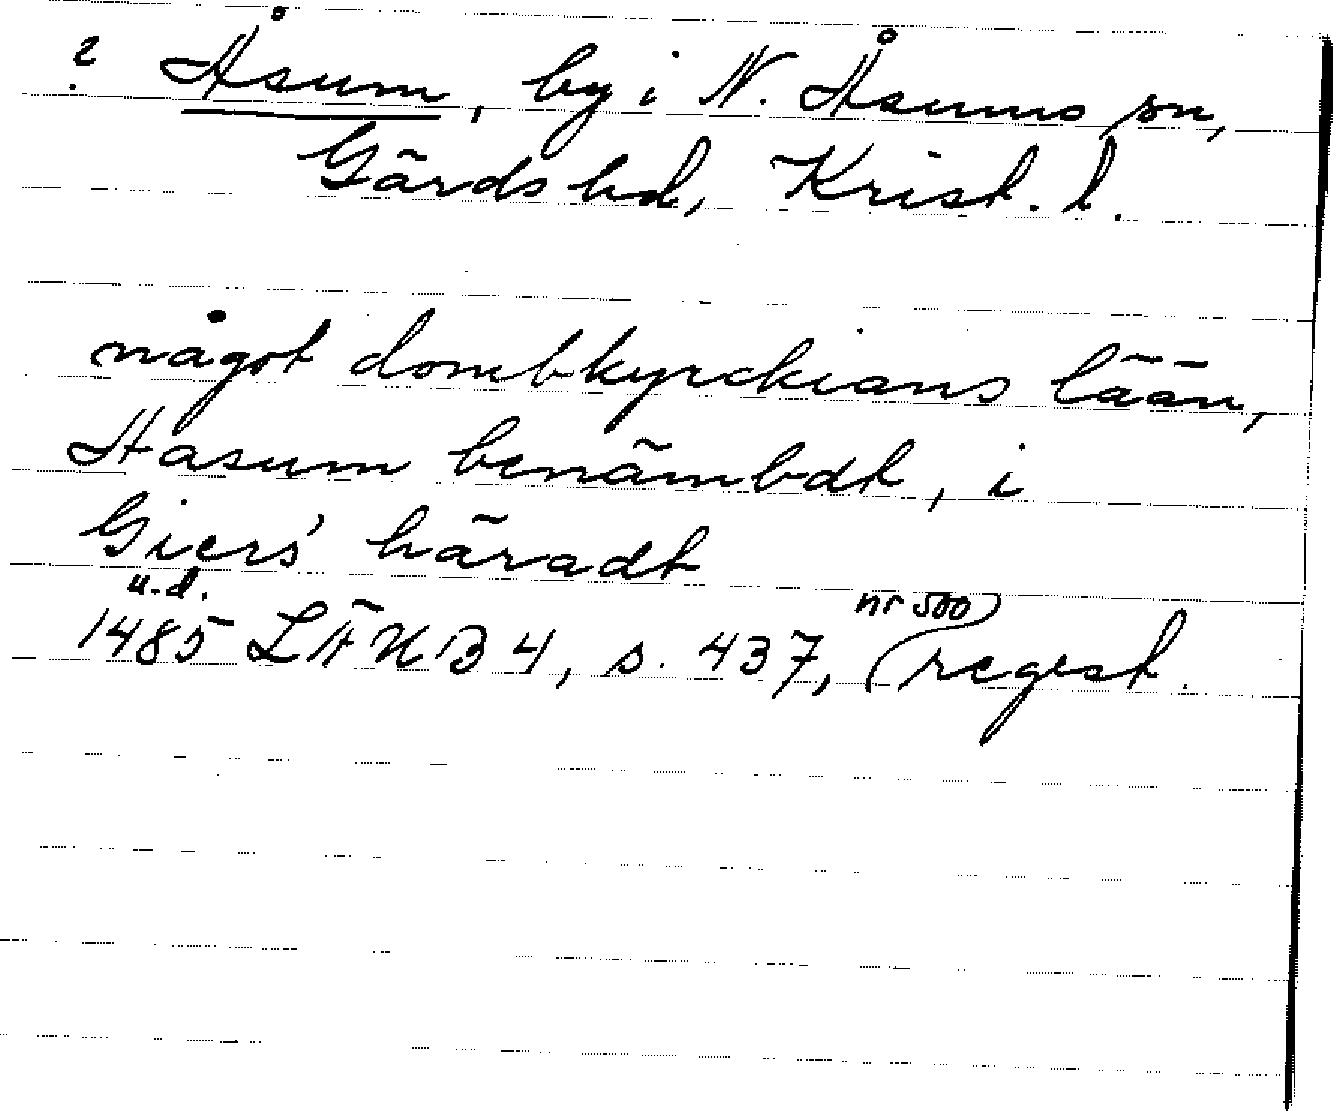 ? Åsum, by i N. Åsums sn,
Gärds hd, Krist. l.
något dombkyrckians lään,
Aasum benämbdt, i
Giers' häradt
u.d.
nr 500
1485 LÄUB 4, s. 437, regest.